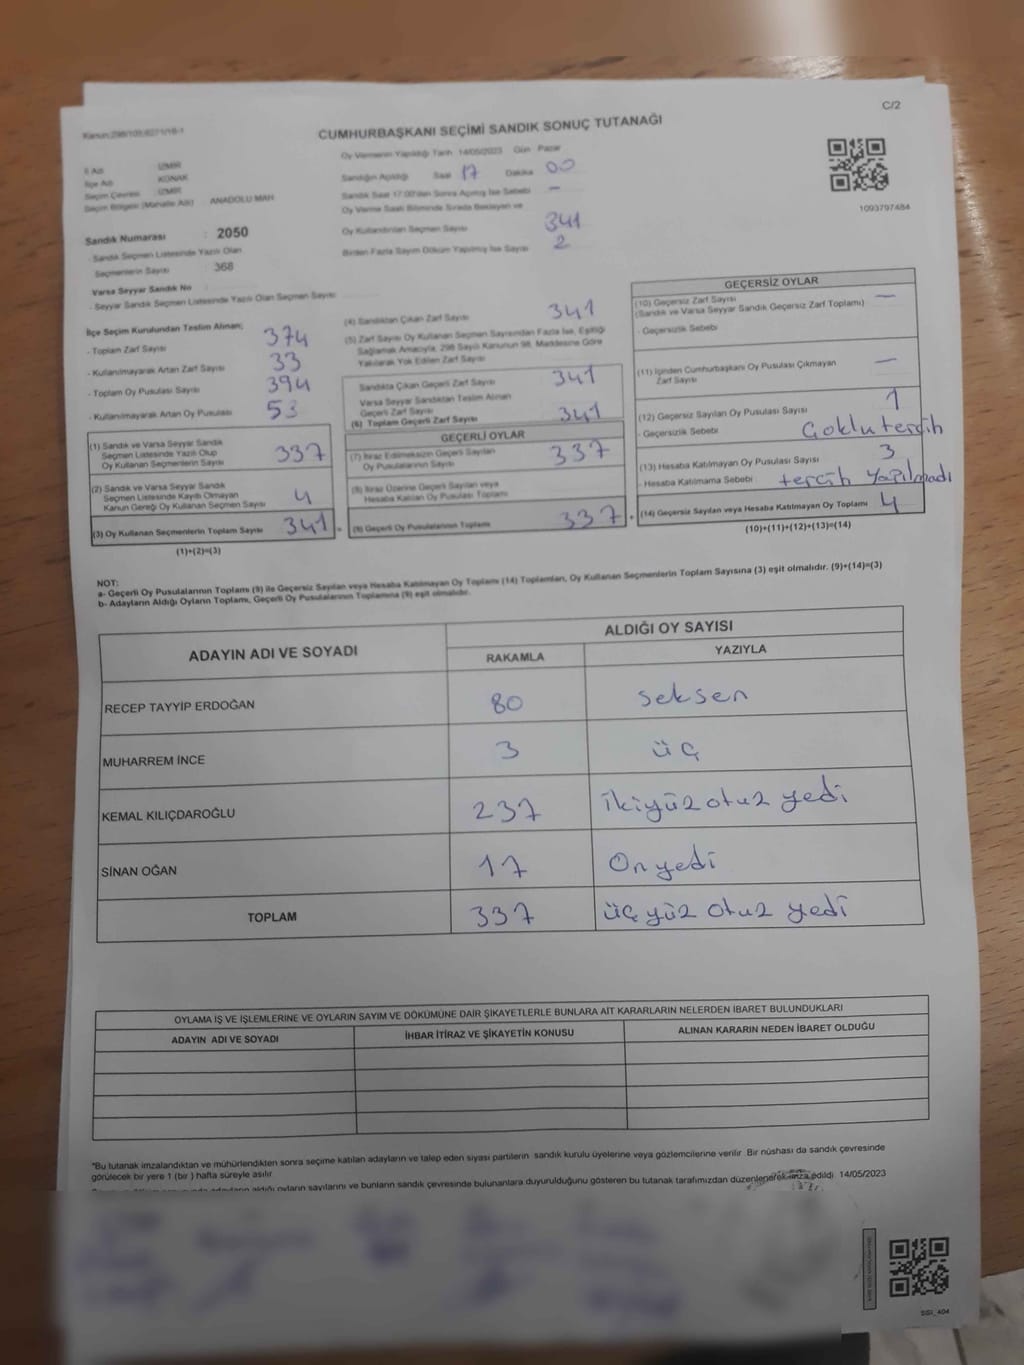 C/2
Kanun:298/103;6271/16-1
CUMHURBAŞKANI SEÇİMİ SANDIK SONUÇ TUTANAĞI
İl Adı İZMİR
İlçe Adı KONAK
Seçim Çevresi İZMİR
Seçim Bölgesi (Mahalle Adı) : ANADOLU MAH.
Sandık Numarası : 2050
- Sandık Seçmen Listesinde Yazılı Olan
Seçmenlerin Sayısı : 368
Varsa Seyyar Sandık No
- Seyyar Sandık Seçmen Listesinde Yazılı Olan Seçmen Sayısı:
Oy Vermenin Yapıldığı Tarih 14/05/2023 Gün Pazar
Sandığın Açıldığı Saat 17 Dakika 00
Sandık Saat 17:00'den Sonra Açılmış İse Sebebi -
Oy Verme Saati Bitiminde Sırada Bekleyen ve
Oy Kullandırılan Seçmen Sayısı 341
Birden Fazla Sayım Döküm Yapılmış İse Sayısı 2
1093797484
İlçe Seçim Kurulundan Teslim Alınan;
- Toplam Zarf Sayısı 374
- Kullanılmayarak Artan Zarf Sayısı 33
- Toplam Oy Pusulası Sayısı 394
- Kullanılmayarak Artan Oy Pusulası 53
(1) Sandık ve Varsa Seyyar Sandık
Seçmen Listesinde Yazılı Olup
Oy Kullanan Seçmenlerin Sayısı 337
(2) Sandık ve Varsa Seyyar Sandık
Seçmen Listesinde Kayıtlı Olmayan
Kanun Gereği Oy Kullanan Seçmen Sayısı 4
(3) Oy Kullanan Seçmenlerin Toplam Sayısı 341 =
(1)+(2)=(3)
(4) Sandıktan Çıkan Zarf Sayısı 341
(5) Zarf Sayısı Oy Kullanan Seçmen Sayısından Fazla İse, Eşitliği
Sağlamak Amacıyla, 298 Sayılı Kanunun 98. Maddesine Göre
Yakılarak Yok Edilen Zarf Sayısı
Sandıkta Çıkan Geçerli Zarf Sayısı 341
Varsa Seyyar Sandıktan Teslim Alınan
Geçerli Zarf Sayısı
(6) Toplam Geçerli Zarf Sayısı 341
GEÇERLİ OYLAR
(7) İtiraz Edilmeksizin Geçerli Sayılan
Oy Pusulalarının Sayısı 337
(8) İtiraz Üzerine Geçerli Sayılan veya
Hesaba Katılan Oy Pusulası Toplamı
(9) Geçerli Oy Pusulalarının Toplamı 337 +
GEÇERSİZ OYLAR
(10) Geçersiz Zarf Sayısı -
(Sandık ve Varsa Seyyar Sandık Geçersiz Zarf Toplamı)
- Geçersizlik Sebebi
(11) İçinden Cumhurbaşkanı Oy Pusulası Çıkmayan
Zarf Sayısı -
(12) Geçersiz Sayılan Oy Pusulası Sayısı 1
- Geçersizlik Sebebi Çoklu tercih
(13) Hesaba Katılmayan Oy Pusulası Sayısı 3
- Hesaba Katılmama Sebebi tercih yapılmadı
(14) Geçersiz Sayılan veya Hesaba Katılmayan Oy Toplamı 4
(10)+(11)+(12)+(13)=(14)
NOT:
a- Geçerli Oy Pusulalarının Toplamı (9) ile Geçersiz Sayılan veya Hesaba Katılmayan Oy Toplamı (14) Toplamları, Oy Kullanan Seçmenlerin Toplam Sayısına (3) eşit olmalıdır. (9)+(14)=(3)
b- Adayların Aldığı Oyların Toplamı, Geçerli Oy Pusulalarının Toplamına (9) eşit olmalıdır.
ADAYIN ADI VE SOYADI ALDIĞI OY SAYISI
RAKAMLA YAZIYLA
RECEP TAYYİP ERDOĞAN 80 seksen
MUHARREM İNCE 3 üç
KEMAL KILIÇDAROĞLU 237 ikiyüz otuz yedi
SİNAN OĞAN 17 On yedi
TOPLAM 337 üç yüz otuz yedi
OYLAMA İŞ VE İŞLEMLERİNE VE OYLARIN SAYIM VE DÖKÜMÜNE DAİR ŞİKAYETLERLE BUNLARA AİT KARARLARIN NELERDEN İBARET BULUNDUKLARI
ADAYIN ADI VE SOYADI İHBAR İTİRAZ VE ŞİKAYETİN KONUSU ALINAN KARARIN NEDEN İBARET OLDUĞU
"Bu tutanak imzalandıktan ve mühürlendikten sonra seçime katılan adayların ve talep eden siyasi partilerin sandık kurulu üyelerine veya gözlemcilerine verilir. Bir nüshası da sandık çevresinde
görülecek bir yere 1 (bir) hafta süreyle asılır.
adayların aldığı oyların sayılarını ve bunların sandık çevresinde bulunanlara duyurulduğunu gösteren bu tutanak tarafımızdan düzenlenerek imza edildi. 14/05/2023
SSI_404